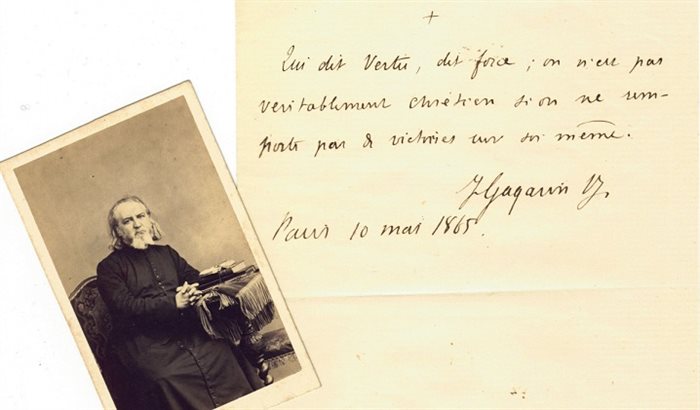 +
Qui dit Vertu, dit force ; on n'est pas
véritablement chrétien si on ne rem-
porte pas de victoires sur soi même.
J Gagarin SJ.
Paris 10 mai 1865.